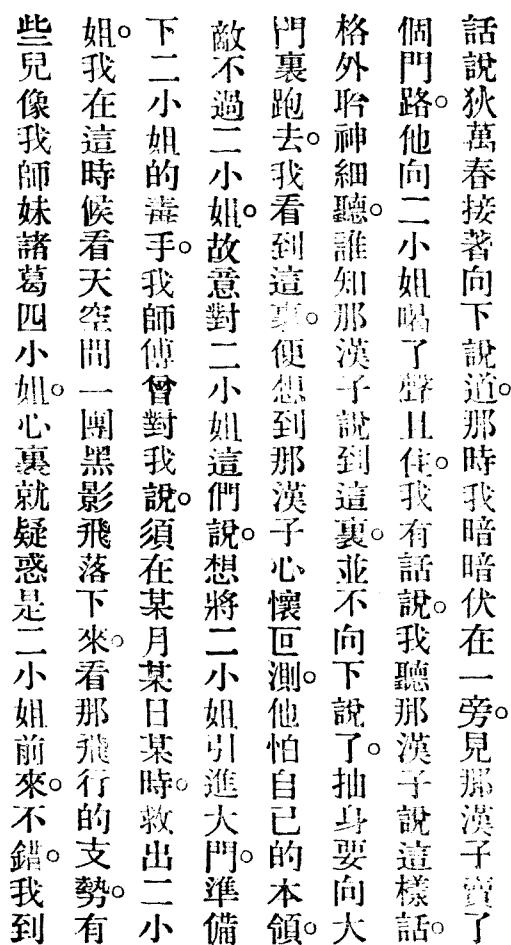 話說狄萬春接著向下說道。那時我暗暗伏在一旁。見那漢子賣了
個門路。他向二小姐喝了聲且住。我有話說。我聽那漢子說這樣話。
格外聆神細聽。誰知那漢子說到這裏。並不向下說了。抽身要向大
門裏跑去。我看到這裏。便想到那漢子心懷叵測。他怕自己的本領。
敵不過二小姐。故意對二小姐這們說。想將二小姐引進大門。準備
下二小姐的毒手。我師傅曾對我說。須在某月某日某時。救出二小
姐。我在這時候看天空間一團黑影飛落下來。看那飛行的支勢。有
些兒像我師妹諸葛四小姐。心裏就疑惑是二小姐前來。不錯。我到